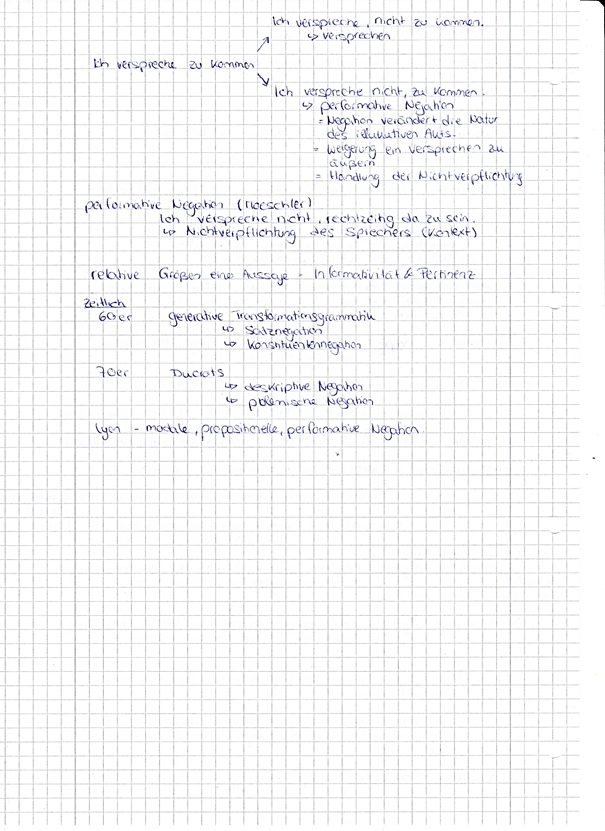 Ich verspreche, nicht zu kommen.
↳ versprechen
Ich verspreche zu kommen
Ich verspreche nicht, zu kommen.
↳ performative Negation
= Negation verändert die Natur
des illokutiven Akts.
= Weigerung ein versprechen zu
äußern
= Handlung der Nichtverpflichtung
performative Negation (Moeschler)
Ich verspreche nicht, rechtzeitig da zu sein.
↳ Nichtverpflichtung des Sprechers (Kontext)
relative Größen eine Aussage - Informativität & Pertinenz
zeitlich
60er generative Transformationsgrammatik
↳ Satznegation
↳ Konstituentennegation
70er Ducrots
↳ deskriptive Negation
↳ polemische Negation
Lyon - modale, propositionelle, performative Negation